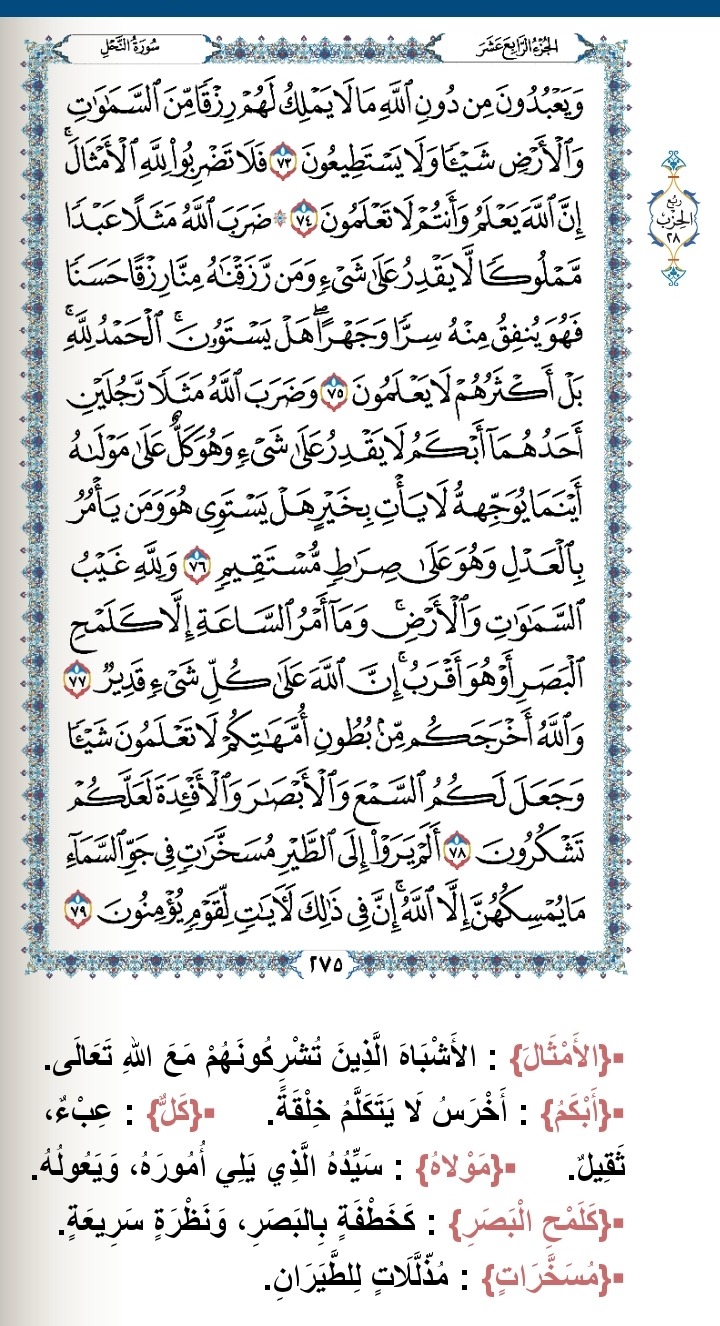 الجزء الرابع عشر
سورة النحل
وَيَعْبُدُونَ مِن دُونِ ٱللَّهِ مَا لَا يَمْلِكُ لَهُمْ رِزْقًا مِّنَ ٱلسَّمَٰوَٰتِ
وَٱلْأَرْضِ شَيْـًٔا وَلَا يَسْتَطِيعُونَ ٧٣ فَلَا تَضْرِبُوا۟ لِلَّهِ ٱلْأَمْثَالَ ۚ
إِنَّ ٱللَّهَ يَعْلَمُ وَأَنتُمْ لَا تَعْلَمُونَ ٧٤ ۞ ضَرَبَ ٱللَّهُ مَثَلًا عَبْدًا
مَّمْلُوكًا لَّا يَقْدِرُ عَلَىٰ شَىْءٍ وَمَن رَّزَقْنَٰهُ مِنَّا رِزْقًا حَسَنًا
فَهُوَ يُنفِقُ مِنْهُ سِرًّا وَجَهْرًا ۖ هَلْ يَسْتَوُۥنَ ۚ ٱلْحَمْدُ لِلَّهِ ۚ
بَلْ أَكْثَرُهُمْ لَا يَعْلَمُونَ ٧٥ وَضَرَبَ ٱللَّهُ مَثَلًا رَّجُلَيْنِ
أَحَدُهُمَآ أَبْكَمُ لَا يَقْدِرُ عَلَىٰ شَىْءٍ وَهُوَ كَلٌّ عَلَىٰ مَوْلَىٰهُ
أَيْنَمَا يُوَجِّههُّ لَا يَأْتِ بِخَيْرٍ هَلْ يَسْتَوِى هُوَ وَمَن يَأْمُرُ
بِٱلْعَدْلِ وَهُوَ عَلَىٰ صِرَٰطٍ مُّسْتَقِيمٍ ٧٦ وَلِلَّهِ غَيْبُ
ٱلسَّمَٰوَٰتِ وَٱلْأَرْضِ ۚ وَمَآ أَمْرُ ٱلسَّاعَةِ إِلَّا كَلَمْحِ
ٱلْبَصَرِ أَوْ هُوَ أَقْرَبُ ۚ إِنَّ ٱللَّهَ عَلَىٰ كُلِّ شَىْءٍ قَدِيرٌ ٧٧
وَٱللَّهُ أَخْرَجَكُم مِّنۢ بُطُونِ أُمَّهَٰتِكُمْ لَا تَعْلَمُونَ شَيْـًٔا
وَجَعَلَ لَكُمُ ٱلسَّمْعَ وَٱلْأَبْصَٰرَ وَٱلْأَفْـِٔدَةَ لَعَلَّكُمْ
تَشْكُرُونَ ٧٨ أَلَمْ يَرَوْا۟ إِلَى ٱلطَّيْرِ مُسَخَّرَٰتٍ فِى جَوِّ ٱلسَّمَآءِ
مَا يُمْسِكُهُنَّ إِلَّا ٱللَّهُ ۗ إِنَّ فِى ذَٰلِكَ لَءَايَٰتٍ لِّقَوْمٍ يُؤْمِنُونَ ٧٩
٢٧٥
ربع
الحزب
٢٨
▪{الأَمْثَالَ} : الأَشْبَاهَ الَّذِينَ تُشْرِكُونَهُمْ مَعَ اللهِ تَعَالَى.
▪{أَبْكَمُ} : أَخْرَسُ لَا يَتَكَلَّمُ خِلْقَةً. ▪{كَلٌّ} : عِبْءٌ،
ثَقِيلٌ. ▪{مَوْلاهُ} : سَيِّدُهُ الَّذِي يَلِي أُمُورَهُ، وَيَعُولُهُ.
▪{كَلَمْحِ الْبَصَرِ} : كَخَطْفَةٍ بِالبَصَرِ، وَنَظْرَةٍ سَرِيعَةٍ.
▪{مُسَخَّرَاتٍ} : مُذَّلَّلَاتٍ لِلطَّيَرَانِ.